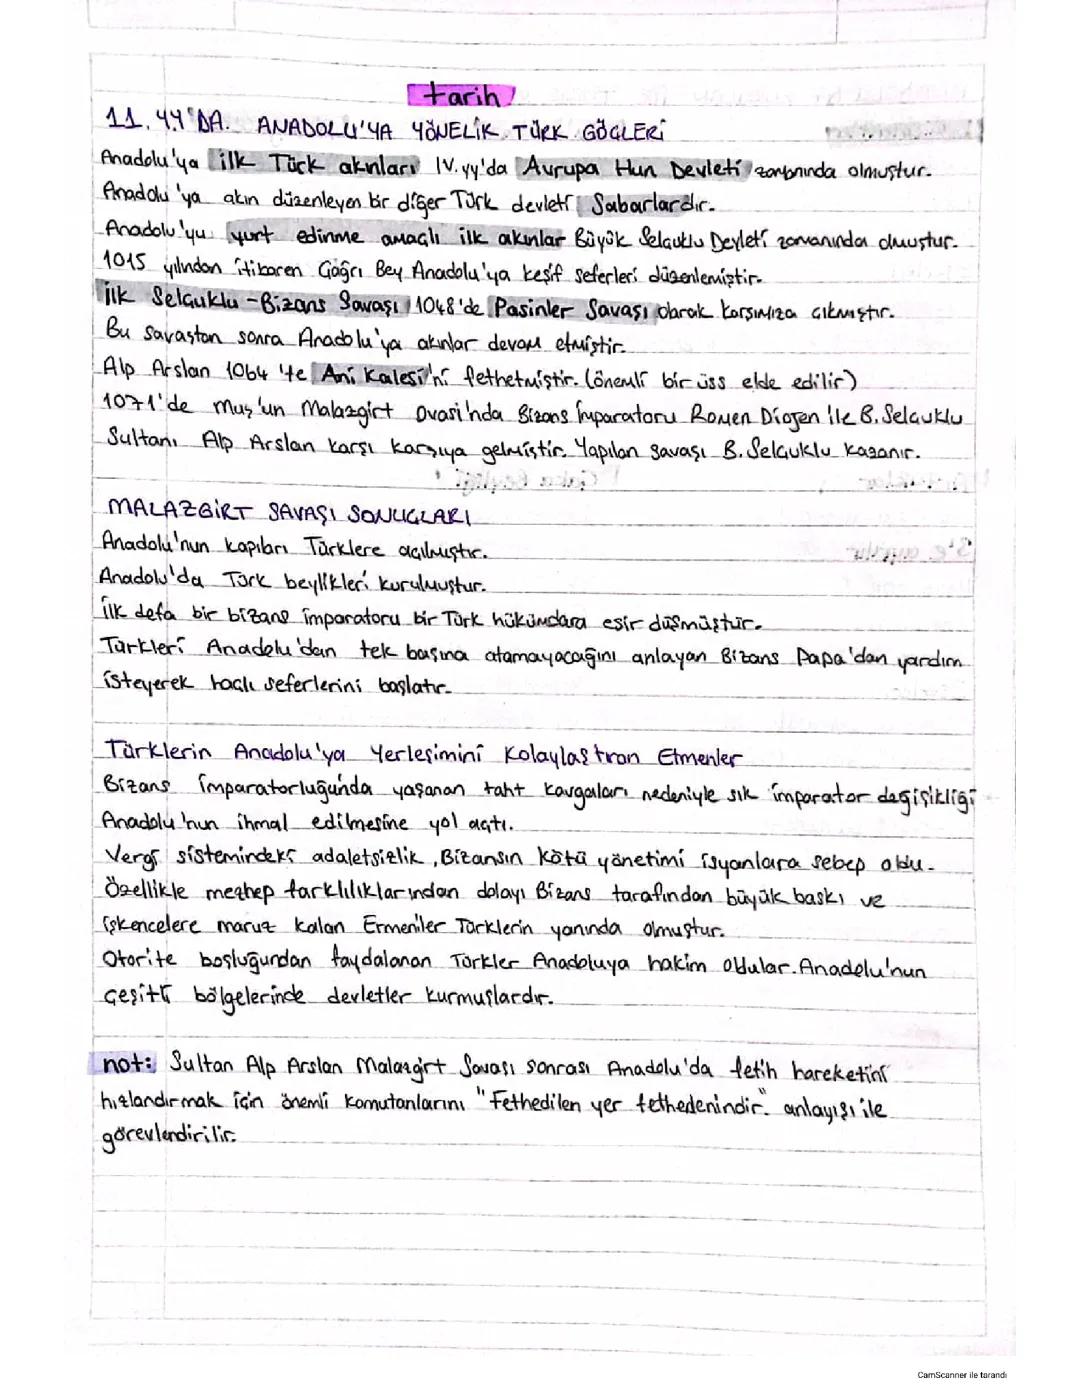 tarih
11. YY'DA. ANADOLU'YA YÖNELİK TÜRK GÖÇLERİ
Anadolu'ya ilk Türk akınları IV. yy'da Avrupa Hun Devleti zamanında olmuştur.
Anadolu'ya akın düzenleyen bir diğer Türk devleti Sabarlardır.
Anadolu'yu yurt edinme amaçlı ilk akınlar Büyük Selçuklu Devleti zamanında olmuştur.
1015 yılından itibaren Çağrı Bey Anadolu'ya keşif seferleri düzenlemiştir.
İlk Selçuklu-Bizans Savaşı 1048'de Pasinler Savaşı olarak karşımıza çıkmıştır.
Bu savaştan sonra Anadolu'ya akınlar devam etmiştir.
Alp Arslan 1064'te Ani Kalesi'ni fethetmiştir. (önemli bir üss elde edilir)
1071'de Muş'un Malazgirt Ovası'nda Bizans İmparatoru Romen Diojen ile B. Selçuklu
Sultanı Alp Arslan karşı karşıya gelmiştir. Yapılan savaşı B. Selçuklu kazanır.
MALAZGİRT SAVAŞI SONUÇLARI
Anadolu'nun kapıları Türklere açılmıştır.
Anadolu'da Türk beylikleri kurulmuştur.
İlk defa bir bizans imparatoru bir Türk hükümdara esir düşmüştür.
Türkleri Anadolu'dan tek başına atamayacağını anlayan Bizans Papa'dan yardım
isteyerek haçlı seferlerini başlatır.
Türklerin Anadolu'ya Yerleşimini Kolaylaştıran Etmenler
Bizans İmparatorluğunda yaşanan taht kavgaları nedeniyle sık imparator değişikliği
Anadolu'nun ihmal edilmesine yol açtı.
Vergi sistemindeki adaletsizlik, Bizansın kötü yönetimi isyanlara sebep oldu.
Özellikle mezhep farklılıklarından dolayı Bizans tarafından büyük baskı ve
işkencelere maruz kalan Ermeniler Türklerin yanında olmuştur.
Otorite boşluğundan faydalanan Türkler Anadoluya hakim oldular. Anadolu'nun
çeşitli bölgelerinde devletler kurmuşlardır.
not: Sultan Alp Arslan Malazgirt Savaşı sonrası Anadolu'da fetih hareketini
hızlandırmak için önemli komutanlarını "Fethedilen yer fethedenindir." anlayışı ile
görevlendirilir.
CamScanner ile tarandı